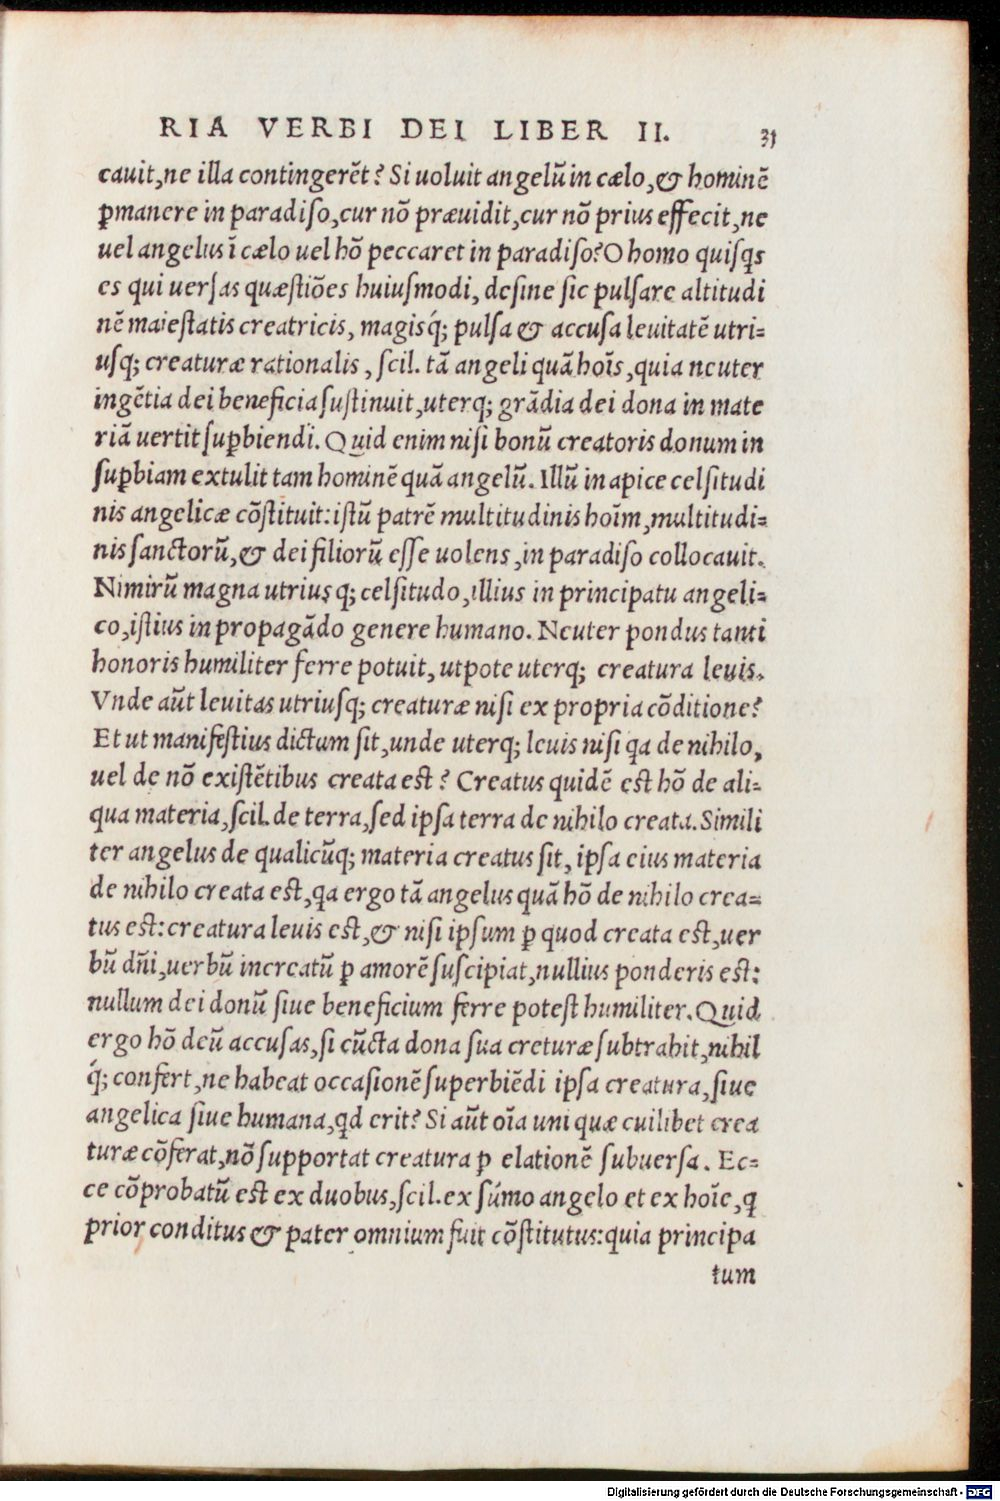 RIA VERBI DEI LIBER II. 31
cauit,ne illa contingerēt? Si uoluit angelū in cælo,& hominē
ꝑmanere in paradiſo,cur nō præuidit,cur nō prius effecit,ne
uel angelus ī cælo uel hō peccaret in paradiſo?O homo quiſqs
es qui uerſas quæſtiōes huiuſmodi, deſine ſic pulſare altitudi
nē maieſtatis creatricis, magisq́; pulſa & accuſa leuitatē utri⸗
uſq; creaturæ rationalis, ſcil. tā angeli quā hoīs,quia neuter
ingētia dei beneficia ſuſtinuit,uterq; grādia dei dona in mate
riā uertit ſuꝑbiendi. Quid enim niſi bonū creatoris donum in
ſuꝑbiam extulit tam hominē quā angelū. Illū in apice celſitudi
nis angelicæ cōſtituit:iſtū patrē multitudinis hoīm,multitudi⸗
nis ſanctorū,& dei filiorū eſſe uolens,in paradiſo collocauit.
Nimirū magna utriusq; celſitudo,illius in principatu angeli⸗
co,iſtius in propagādo genere humano. Neuter pondus tanti
honoris humiliter ferre potuit,utpote uterq; creatura leuis.
Vnde aūt leuitas utriuſq; creaturæ niſi ex propria cōditione?
Et ut manifeſtius dictum ſit,unde uterq; leuis niſi qa de nihilo,
uel de nō exiſtētibus creata eſt? Creatus quidē eſt hō de ali⸗
qua materia,ſcil. de terra,ſed ipſa terra de nihilo creata. Simili
ter angelus de qualicūq; materia creatus ſit, ipſa eius materia
de nihilo creata eſt,qa ergo tā angelus quā hō de nihilo crea⸗
tus eſt:creatura leuis eſt,& niſi ipſum ꝑ quod creata eſt,uer
bū dñi,uerbū increatū ꝑ amorē ſuſcipiat,nullius ponderis eſt:
nullum dei donū ſiue beneficium ferre poteſt humiliter. Quid
ergo hō deū accuſas,ſi cūcta dona ſua creturæ ſubtrahit,nihil
q́; confert,ne habeat occaſionē ſuperbiēdi ipſa creatura,ſiue
angelica ſiue humana,qd erit? Si aūt oīa uni quæ cuilibet crea
turæ cōferat,nō ſupportat creatura ꝑ elationē ſubuerſa. Ec⸗
ce cōprobatū eſt ex duobus,ſcil.ex ſúmo angelo et ex hoīe,q
prior conditus & pater omnium fuit cōſtitutus:quia principa
tum
Digitalisierung gefördert durch die Deutsche Forschungsgemeinschaft - DFG